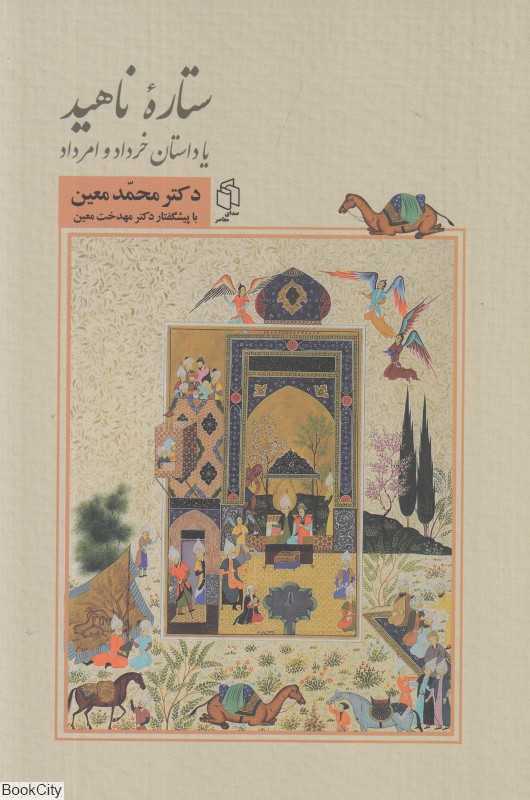 ستارهٔ ناهید
یا داستان خرداد و امرداد
دکتر محمّد معین
با پیشگفتار دکتر مهدخت معین
صدای
معاصر
BookCity